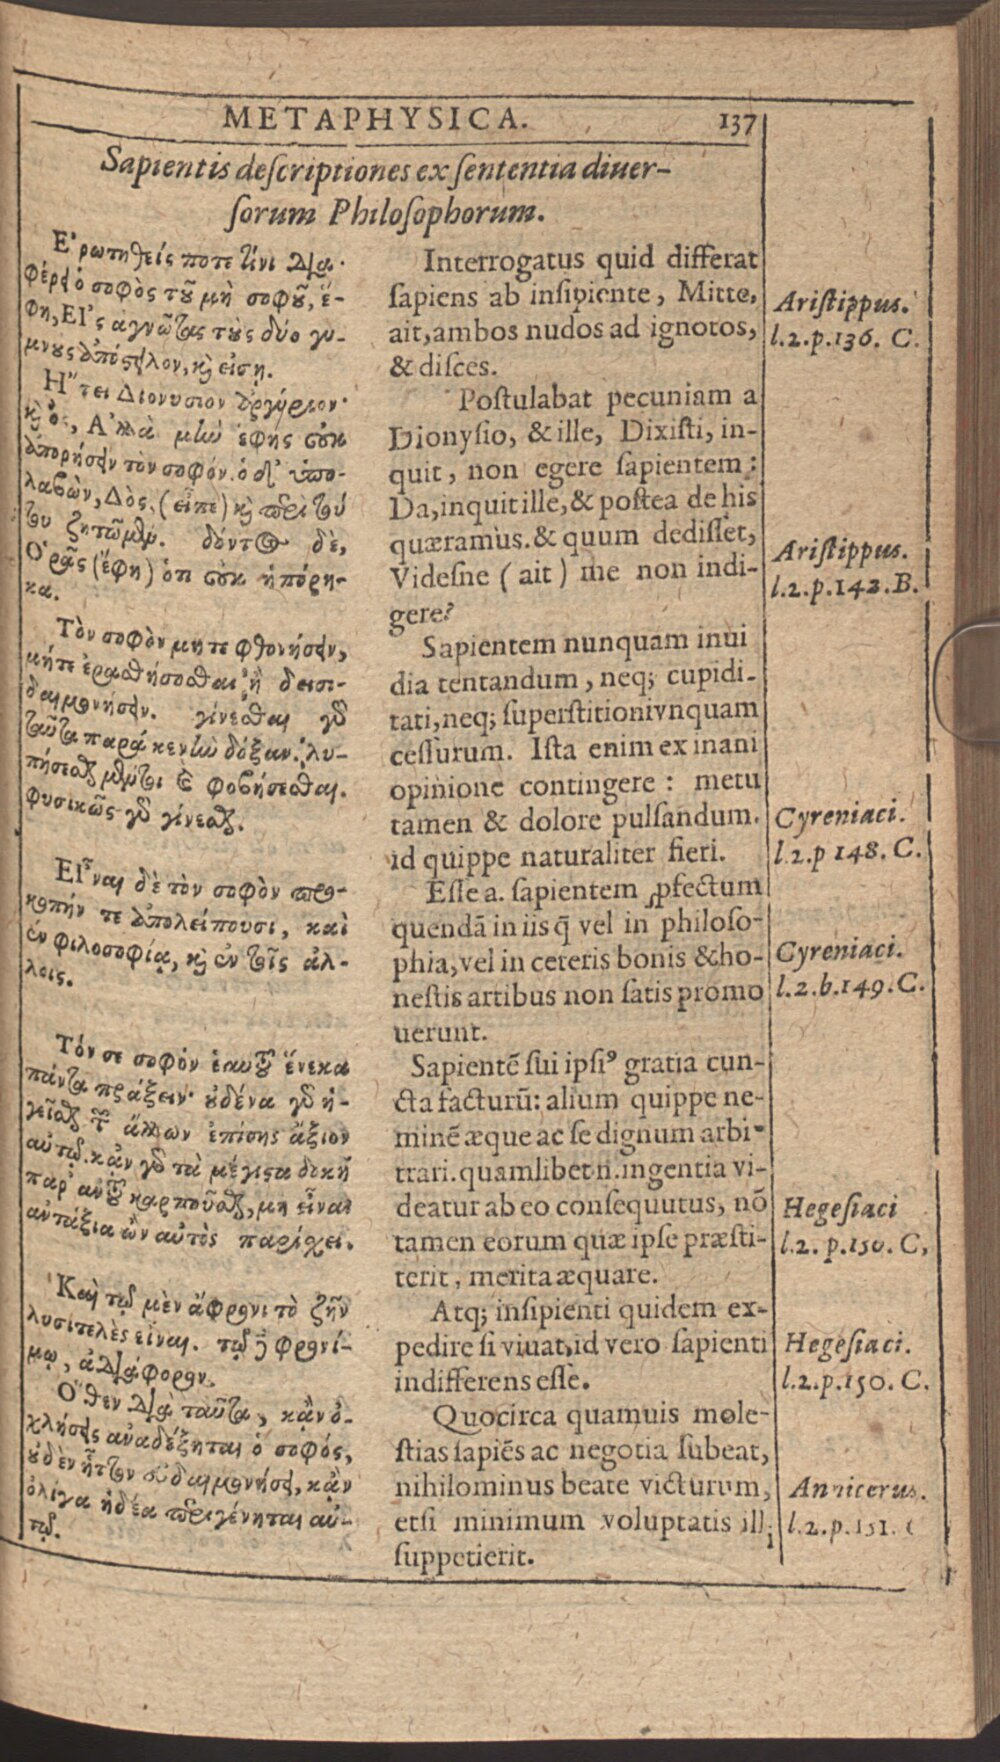 METAPHYSICA. 137
Sapientis deſcriptiones ex ſententia diuer-
ſorum Philoſophorum.
Ἐρωτηθείς ποτε τίνι δια-
φέρει ὁ σοφὸς τοῦ μὴ σοφοῦ, ἔ-
φη, Εἰς ἀγνῶτας τοὺς δύο γυ-
μνοὺς ἀπόστειλον, καὶ εἴσῃ.
Ἤτει Διονύσιον ἀργύριον·
καὶ ὅς, Ἀλλὰ μὴν ἔφης οὐκ
ἀπορήσειν τὸν σοφόν. ὁ δ' ὑπο-
λαβὼν, Δὸς, (εἶπε) καὶ περὶ τού
του ζητῶμεν. δόντος δὲ,
Ὁρᾷς (ἔφη) ὅτι οὐκ ἠπόρη-
κα.
Τὸν σοφὸν μήτε φθονήσειν,
μήτε ἐρασθήσεσθαι, ἢ δεισι-
δαιμονήσειν. γίνεσθαι γὰρ
ταῦτα παρὰ κενὴν δόξαν. λυ-
πήσεσθαι μέντοι καὶ φοβήσεσθαι.
φυσικῶς γὰρ γίνεσθαι.
Εἶναι δὲ τὸν σοφὸν προ-
κοπήν τε ἀπολείπουσι, καὶ
ἐν φιλοσοφίᾳ, καὶ ἐν τοῖς ἄλ-
λοις.
Τόν σε σοφὸν ἑαυτοῦ ἕνεκα
πάντα πράξειν· οὐδένα γὰρ ἡ-
γεῖσθαι τῶν ἄλλων ἐπίσης ἄξιον
αὐτῷ. κἂν γὰρ τὰ μέγιστα δοκῇ
παρ' αὐτοῦ καρποῦσθαι, μὴ εἶναι
αὐτάξια ὧν αὐτὸς παρίσχει.
Καὶ τῷ μὲν ἄφρονι τὸ ζῆν
λυσιτελὲς εἶναι. τῷ δὲ φρονί-
μῳ, ἀδιάφορον.
Ὅθεν διὰ ταῦτα, κἂν ὀ-
χλήσεις ἀναδέξηται ὁ σοφός,
οὐδὲν ἧττον εὐδαιμονήσει, κἂν
ὀλίγα ἡδέα περιγένηται αὐ-
τῷ.
Interrogatus quid differat
ſapiens ab inſipiente, Mitte,
ait, ambos nudos ad ignotos,
& diſces.
Poſtulabat pecuniam a
Dionyſio, & ille, Dixiſti, in-
quit, non egere ſapientem:
Da, inquit ille, & poſtea de his
quæramus. & quum dediſſet,
Videſne (ait) me non indi-
gere?
Sapientem nunquam inui
dia tentandum, neq; cupidi-
tati, neq; ſuperſtitioni vnquam
ceſſurum. Iſta enim ex inani
opinione contingere: metu
tamen & dolore pulſandum.
id quippe naturaliter fieri.
Eſſe a. ſapientem ꝑfectum
quendā in iis q̄ vel in philoſo-
phia, vel in ceteris bonis & ho-
neſtis artibus non ſatis promo
uerunt.
Sapientē ſui ipſiꝰ gratia cun-
cta facturū: alium quippe ne-
minē æque ac ſe dignum arbi-
trari. quamlibet n. ingentia vi-
deatur ab eo conſequutus, nō
tamen eorum quæ ipſe præſti-
terit, merita æquare.
Atq; inſipienti quidem ex-
pedire ſi viuat, id vero ſapienti
indifferens eſſe.
Quocirca quamuis mole-
ſtias ſapiēs ac negotia ſubeat,
nihilominus beate victurum,
etſi minimum voluptatis illi
ſuppetierit.
Ariſtippus.
l.2.p.136. C.
Ariſtippus.
l.2.p.142.B.
Cyreniaci.
l.2.p 148. C.
Cyreniaci.
l.2.b.149.C.
Hegeſiaci
l.2. p.150. C,
Hegeſiaci.
l.2.p.150. C.
Annicerus.
l.2.p.151. C